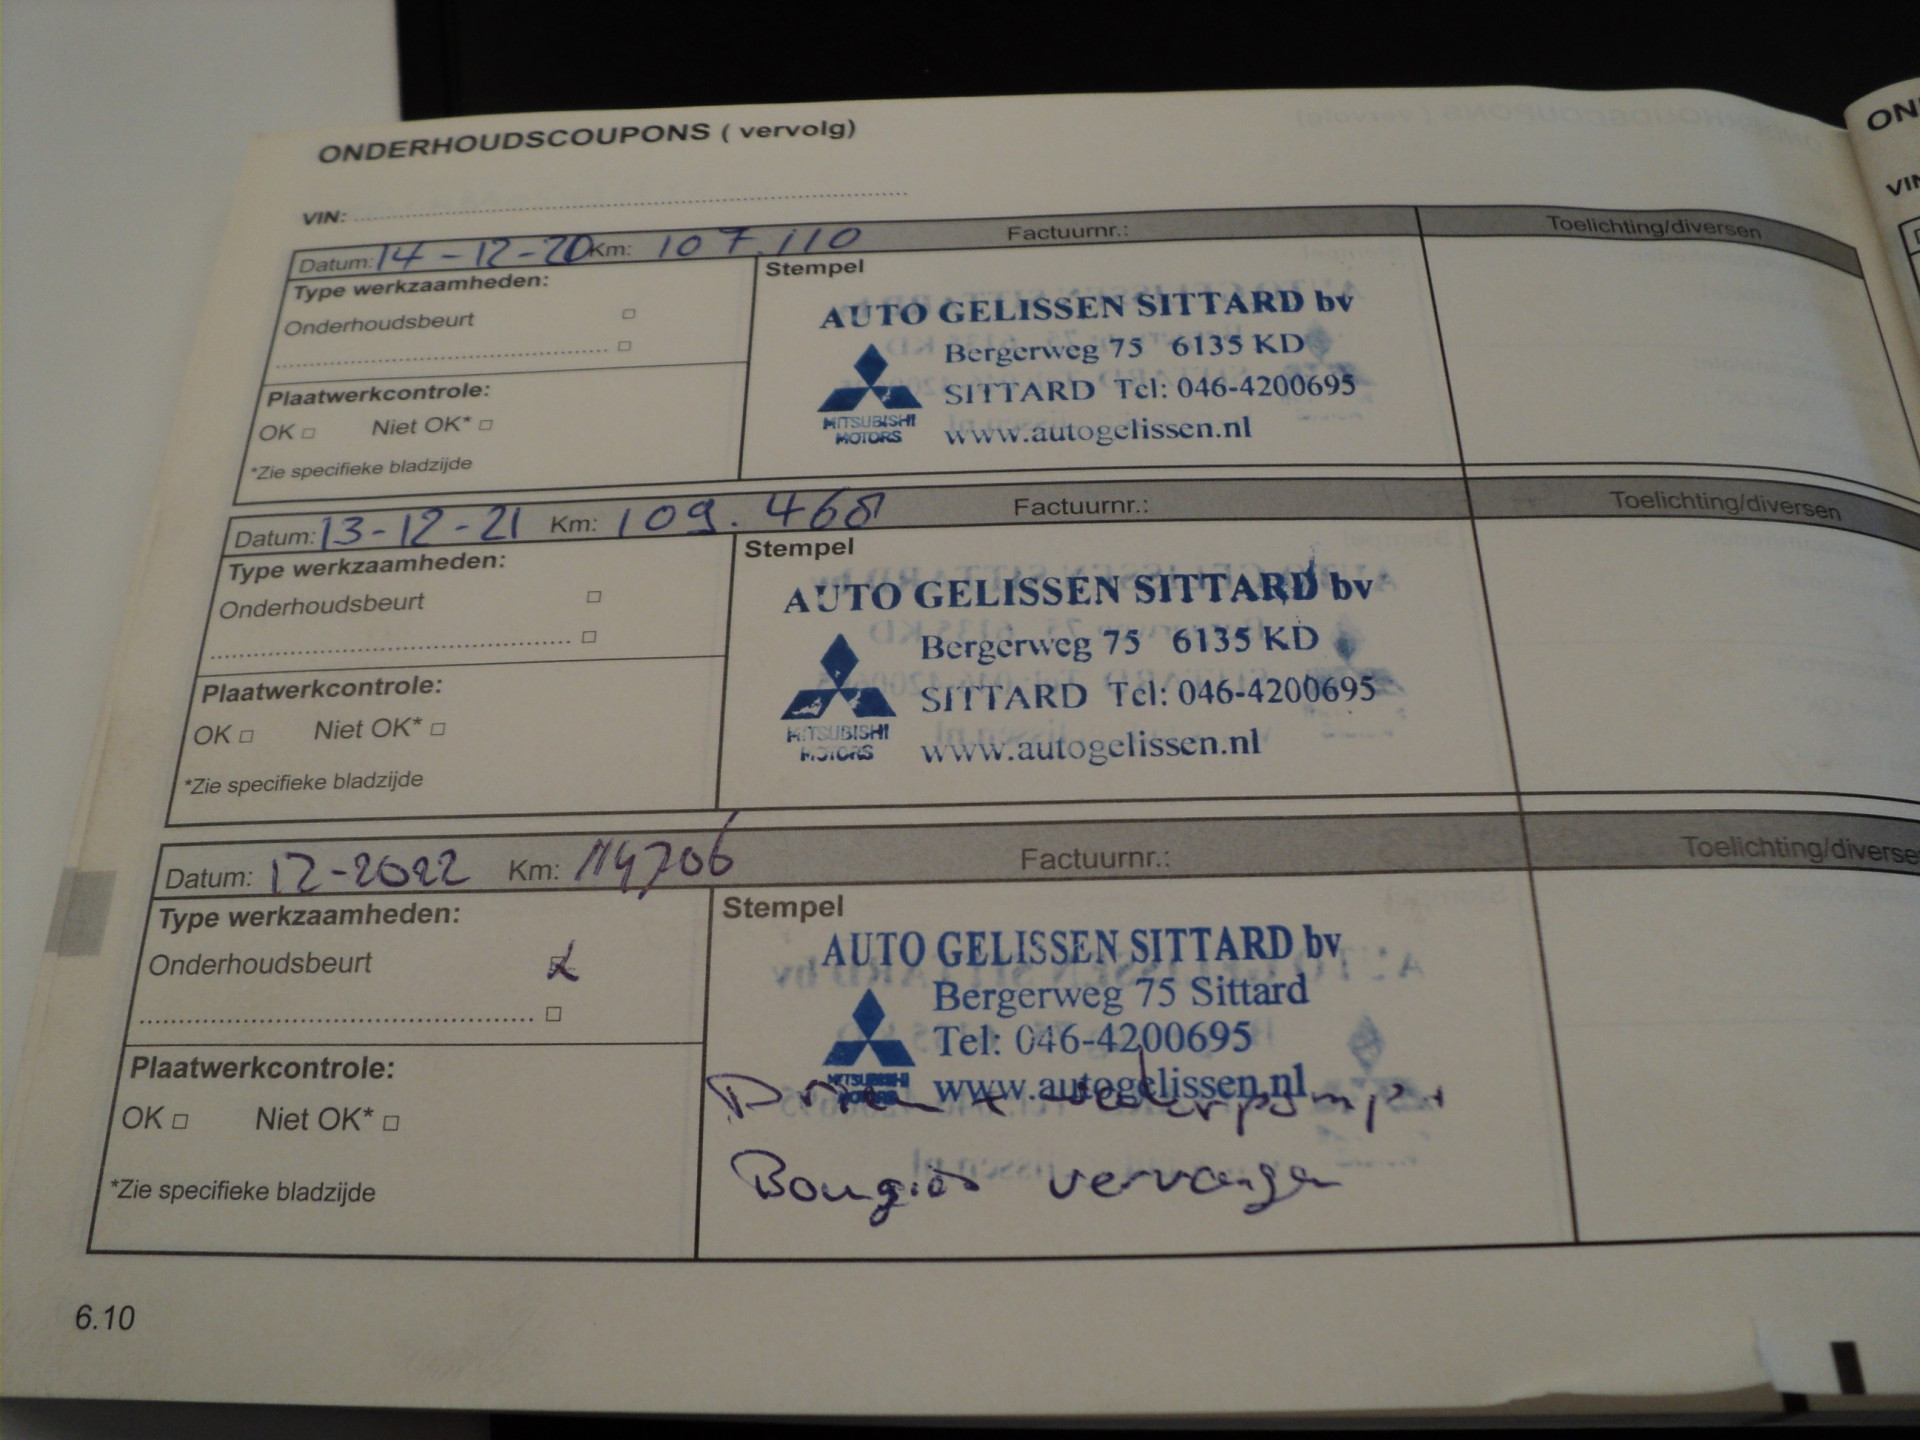 ONDERHOUDSCOUPONS ( vervolg)
VIN:
Datum: 14-12-20 Km: 107.110 Factuurnr.: Toelichting/diversen
Type werkzaamheden:
Onderhoudsbeurt
Plaatwerkcontrole:
OK Niet OK*
*Zie specifieke bladzijde
Stempel
AUTO GELISSEN SITTARD bv
Bergerweg 75 6135 KD
SITTARD Tel: 046-4200695
www.autogelissen.nl
MITSUBISHI
MOTORS
Datum: 13-12-21 Km: 109.468 Factuurnr.: Toelichting/diversen
Type werkzaamheden:
Onderhoudsbeurt
Plaatwerkcontrole:
OK Niet OK*
*Zie specifieke bladzijde
Stempel
AUTO GELISSEN SITTARD bv
Bergerweg 75 6135 KD
SITTARD Tel: 046-4200695
www.autogelissen.nl
MITSUBISHI
MOTORS
Datum: 12-2022 Km: 114706 Factuurnr.: Toelichting/diverse
Type werkzaamheden:
Onderhoudsbeurt
Plaatwerkcontrole:
OK Niet OK*
*Zie specifieke bladzijde
Stempel
AUTO GELISSEN SITTARD bv
Bergerweg 75 Sittard
Tel: 046-4200695
www.autogelissen.nl
MITSUBISHI
MOTORS
+ waterpomp +
Bougies vervangen
6.10
ON
VIN